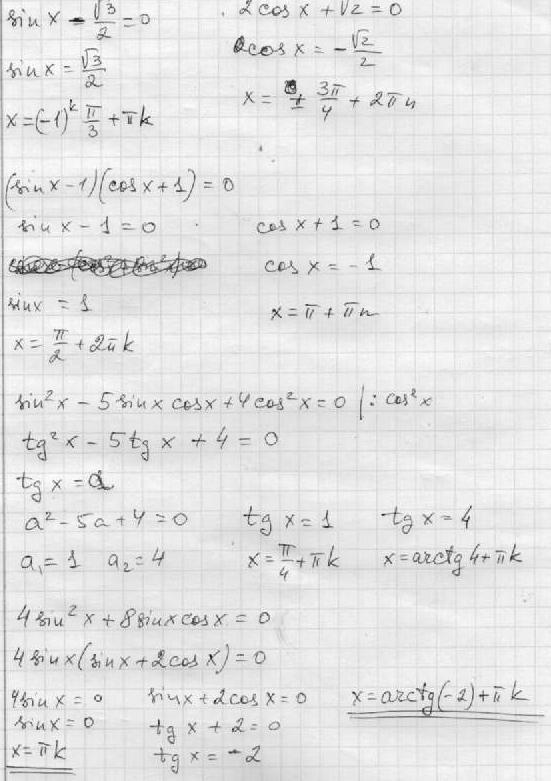 sin x - √3/2 = 0
2cos x + √2 = 0
sin x = √3/2
cos x = -√2/2
x = (-1)^k π/3 + πk
x = ± 3π/4 + 2πn
(sin x - 1)(cos x + 1) = 0
sin x - 1 = 0
cos x + 1 = 0
cos x = -1
sin x = 1
x = π + πn
x = π/2 + 2πk
sin²x - 5 sin x cos x + 4 cos²x = 0 | : cos²x
tg²x - 5 tg x + 4 = 0
tg x = a
a² - 5a + 4 = 0
tg x = 1
tg x = 4
a₁ = 1 a₂ = 4
x = π/4 + πk
x = arctg 4 + πk
4 sin²x + 8 sin x cos x = 0
4 sin x (sin x + 2 cos x) = 0
4 sin x = 0
sin x + 2 cos x = 0
x = arctg(-2) + πk
sin x = 0
tg x + 2 = 0
x = πk
tg x = -2